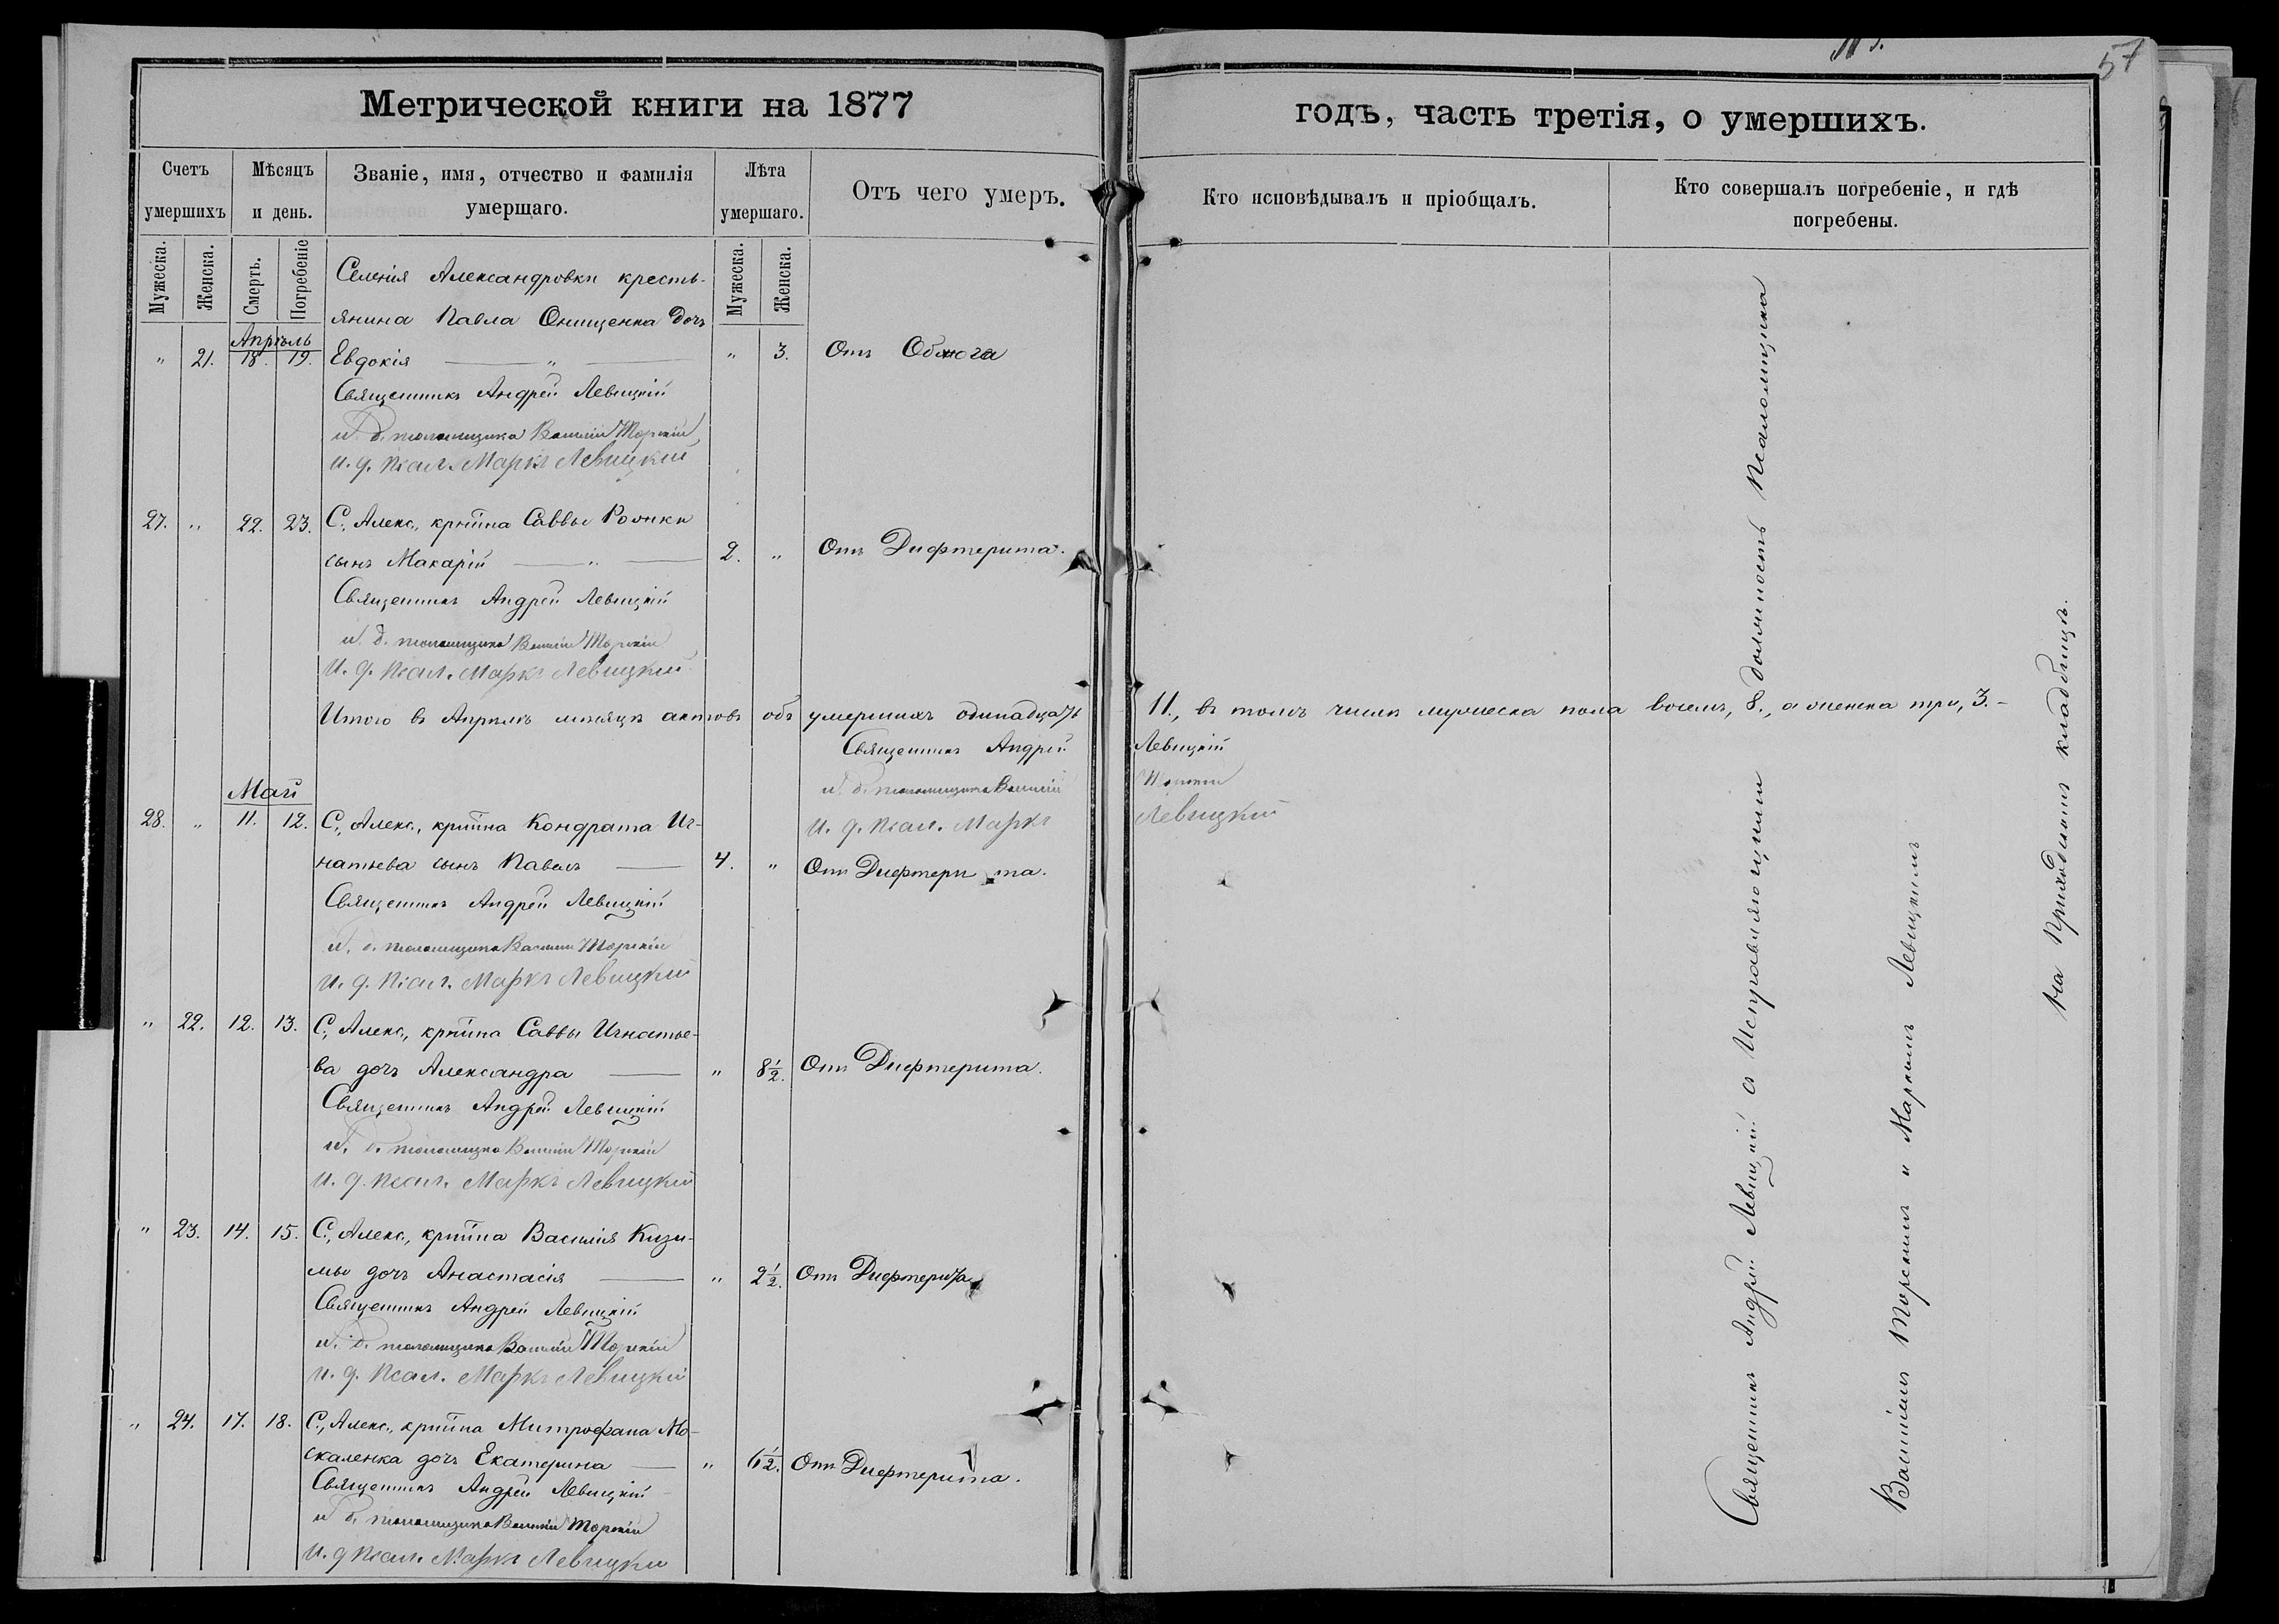 57
Метрической книги на 1877
годъ, часть третія, о умершихъ.
Счетъ умершихъ
Мѣсяцъ и день.
Званіе, имя, отчество и фамилія умершаго.
Лѣта умершаго.
Отъ чего умеръ.
Кто исповѣдывалъ и пріобщалъ.
Кто совершалъ погребеніе, и гдѣ погребены.
Мужеска.
Женска.
Смерть.
Погребеніе
Мужеска.
Женска.
Селенія Александровки кресть-
янина Павла Онищенка дочь
Апрѣль
" 21. 18. 19. Евдокія " " 3. Отъ Обжога
Священникъ Андрей Левицкій
и. д. псаломщика Василій Торскій
и. д. псал. Маркъ Левицкій
27. " 22. 23. С., Алекс., кр̃тина Саввы
сынъ Макарій " 2. " Отъ Дифтерита.
Священникъ Андрей Левицкій
и. д. псаломщика Василій Торскій
и. д. псал. Маркъ Левицкій
Итого въ Апрѣлѣ мѣсяцѣ актовъ объ умершихъ одинадцать 11., въ томъ числѣ мужеска пола восемь, 8., а женска три, 3.-
Священникъ Андрей Левицкій
и. д. псаломщика Василій Торскій
и. д. псал. Маркъ Левицкій
Май
28. " 11. 12. С., Алекс., кр̃тина Кондрата Иг-
натьева сынъ Павелъ 4. " Отъ Дифтерита.
Священникъ Андрей Левицкій
и. д. псаломщика Василій Торскій
и. д. псал. Маркъ Левицкій
" 22. 12. 13. С., Алекс., кр̃тина Саввы Игнатье-
ва дочь Александра " 8 1/2. Отъ Дифтерита.
Священникъ Андрей Левицкій
и. д. псаломщика Василій Торскій
и. д. псал. Маркъ Левицкій
" 23. 14. 15. С., Алекс., кр̃тина Василія Кизи-
мы дочь Анастасія " 2 1/2. Отъ Дифтерита
Священникъ Андрей Левицкій
и. д. псаломщика Василій Торскій
и. д. псал. Маркъ Левицкій
" 24. 17. 18. С., Алекс., кр̃тина Митрофана Мо-
скаленка дочь Екатерина " 6 1/2. Отъ Дифтерита.
Священникъ Андрей Левицкій
и. д. псаломщика Василій Торскій
и. д. псал. Маркъ Левицкій
Священникъ Андрей Левицкій съ Исправляющими должность Псаломщика
Василіемъ Торскимъ и Маркомъ Левицкимъ
на Приходскомъ кладбищѣ.